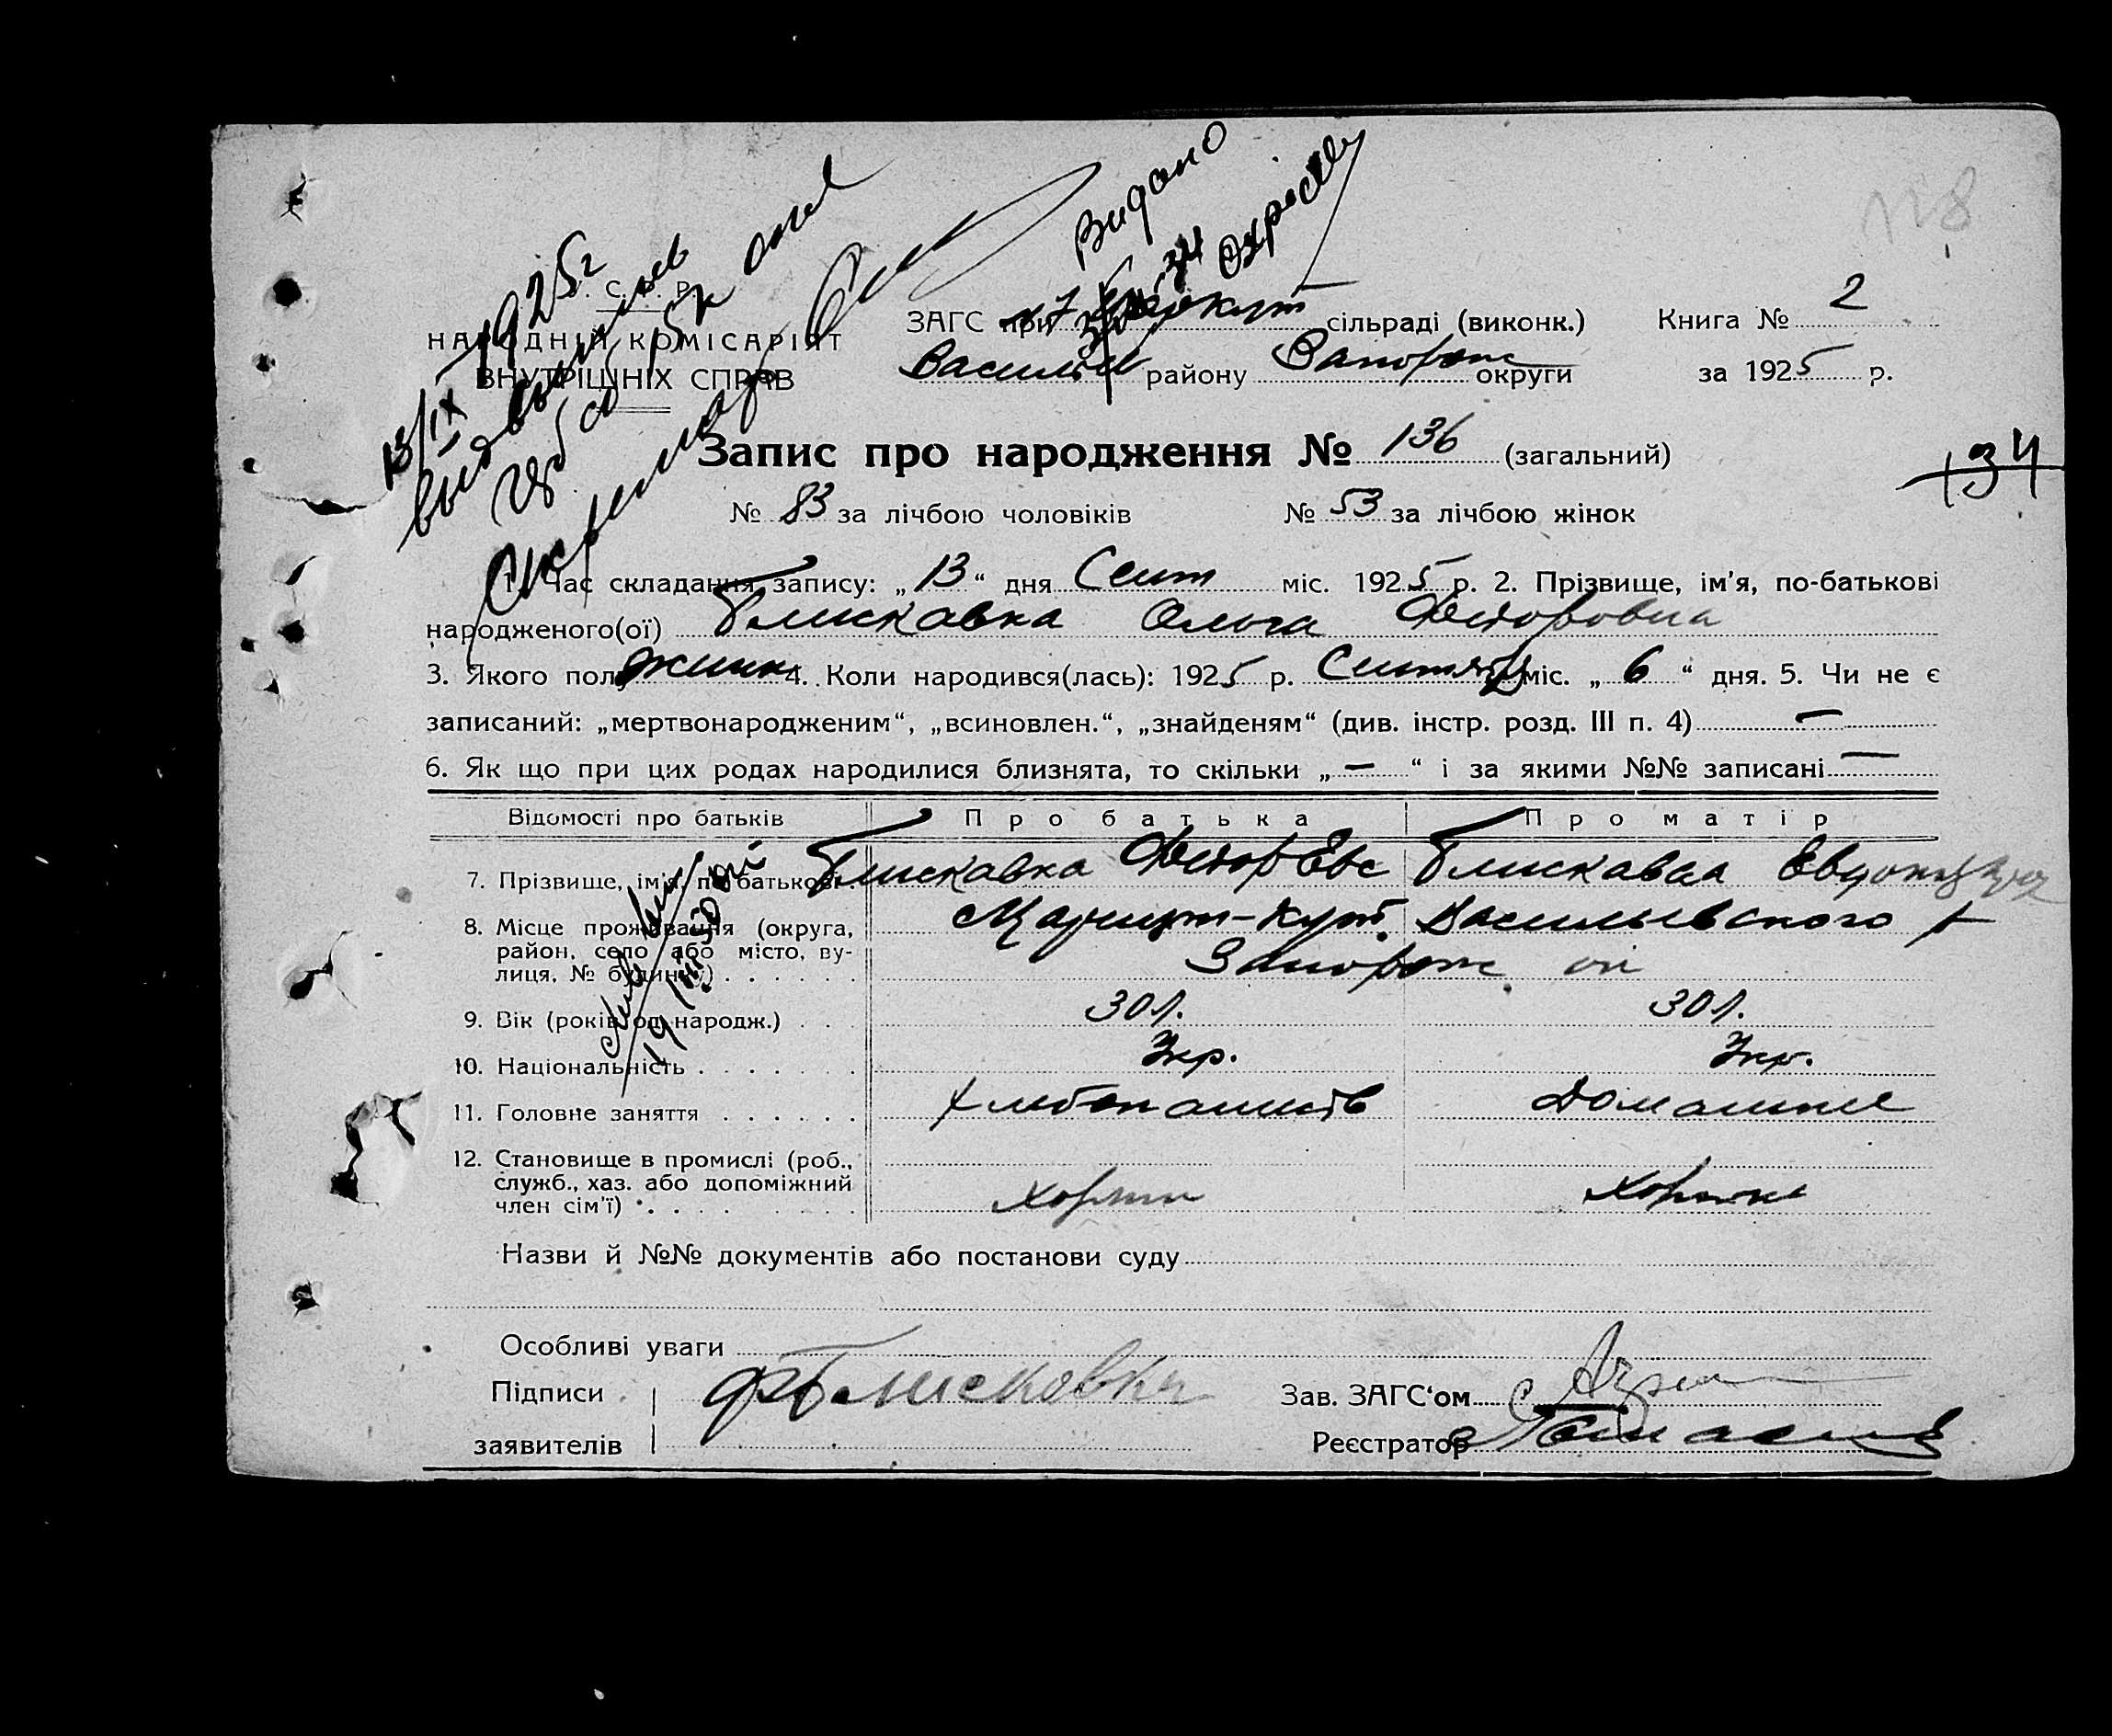 Видано
13/IX 1925г
С. Р. Р.
НАРОДНІЙ КОМІСАРІЯТ
ВНУТРІШНІХ СПРАВ
ЗАГС при сільраді (виконк.) Книга № 2
Василів району Запорож округи за 1925 р.
Запис про народження № 136 (загальний)
134
№ 83 за лічбою чоловіків № 53 за лічбою жінок
1. Час складання запису: „13“ дня Сент міс. 1925 р. 2. Прізвище, ім’я, по-батькові
народженого(ої) Блискавка Ольга Федоровна
3. Якого полу жіник 4. Коли народився(лась): 1925 р. Сентябр міс. „6“ дня. 5. Чи не є
записаний: „мертвонародженим“, „всиновлен.“, „знайденям“ (див. інстр. розд. III п. 4) —
6. Як що при цих родах народилися близнята, то скільки „—“ і за якими №№ записані —
Відомості про батьків Про батька Про матір
7. Прізвище, ім’я, по батькові Блискавка Федор Евс Блискавка Евдокия
8. Місце проживання (округа, район, село або місто, вулиця, № будинку) Васильевского р
Запорож ок
9. Вік (років од народж.) 30 л. 30 л.
10. Національність Укр. Укр.
11. Головне заняття Хлебопашеств Домашнее
12. Становище в промислі (роб., служб., хаз. або допоміжний член сім’ї)
Назви й №№ документів або постанови суду
Особливі уваги
Підписи Блисковка Зав. ЗАГС‘ом
заявителів Реєстратор